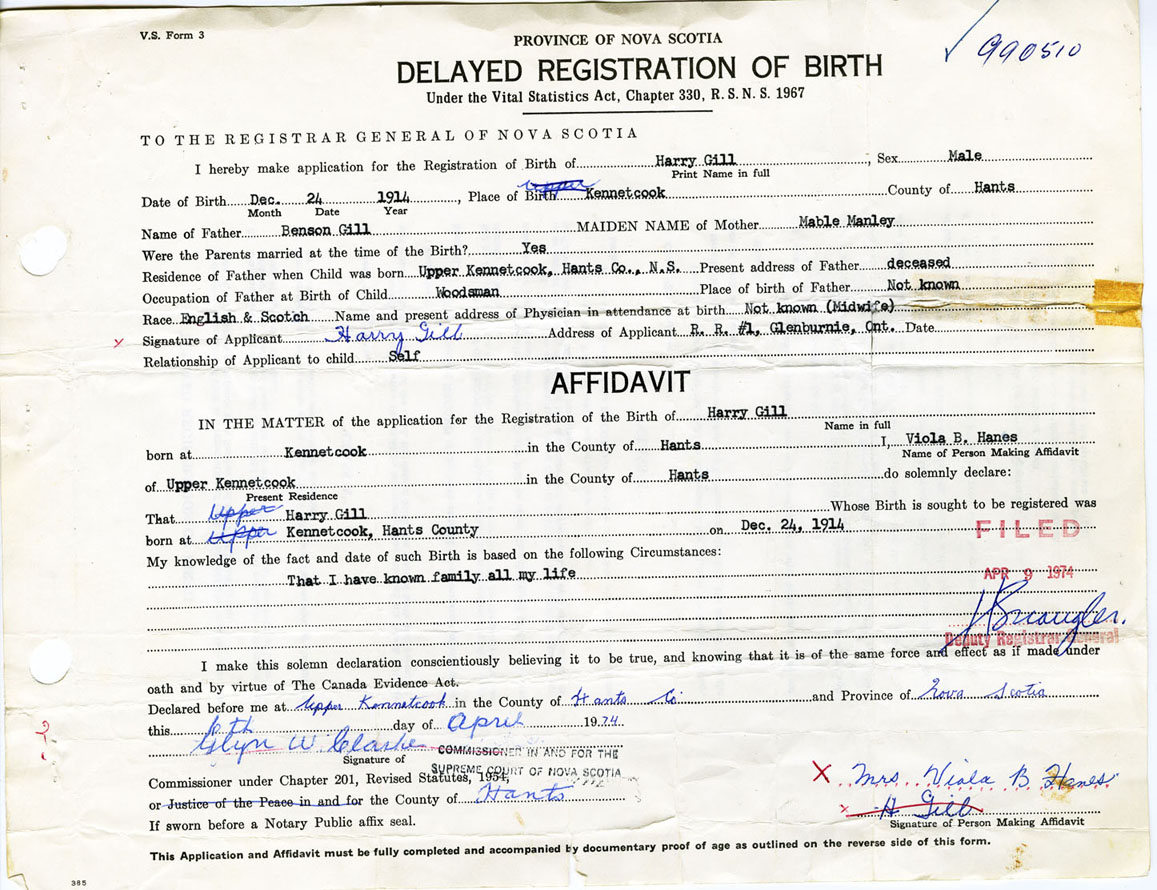 V.S. Form 3
PROVINCE OF NOVA SCOTIA
990510
DELAYED REGISTRATION OF BIRTH
Under the Vital Statistics Act, Chapter 330, R. S. N. S. 1967
TO THE REGISTRAR GENERAL OF NOVA SCOTIA
I hereby make application for the Registration of Birth of Harry Gill, Sex Male
Print Name in full
Upper
Date of Birth Dec. 24 1914, Place of Birth Kennetcook County of Hants
Month Date Year
Name of Father Benson Gill MAIDEN NAME of Mother Mable Manley
Were the Parents married at the time of the Birth? Yes
Residence of Father when Child was born Upper Kennetcook, Hants Co., N.S. Present address of Father deceased
Occupation of Father at Birth of Child Woodsman Place of birth of Father Not known
Race English & Scotch Name and present address of Physician in attendance at birth Not known (Midwife)
x Signature of Applicant Harry Gill Address of Applicant R. R. #1, Glenburnie, Ont. Date
Relationship of Applicant to child Self
AFFIDAVIT
IN THE MATTER of the application for the Registration of the Birth of Harry Gill
Name in full
born at Kennetcook in the County of Hants I, Viola B. Hanes
Name of Person Making Affidavit
of Upper Kennetcook in the County of Hants do solemnly declare:
Present Residence
That Upper Harry Gill Whose Birth is sought to be registered was
born at Upper Kennetcook, Hants County on Dec. 24, 1914
FILED
My knowledge of the fact and date of such Birth is based on the following Circumstances:
That I have known family all my life
APR 9 1974
Deputy Registrar General
I make this solemn declaration conscientiously believing it to be true, and knowing that it is of the same force and effect as if made under
oath and by virtue of The Canada Evidence Act.
Declared before me at Upper Kennetcook in the County of Hants Co and Province of Nova Scotia
this 6th day of April 1974.
Glyn W. Clarke
COMMISSIONER IN AND FOR THE
Signature of
SUPREME COURT OF NOVA SCOTIA
Commissioner under Chapter 201, Revised Statutes, 1954,
X Mrs Viola B Hanes
or Justice of the Peace in and for the County of Hants
x H Gill
Signature of Person Making Affidavit
If sworn before a Notary Public affix seal.
This Application and Affidavit must be fully completed and accompanied by documentary proof of age as outlined on the reverse side of this form.
385